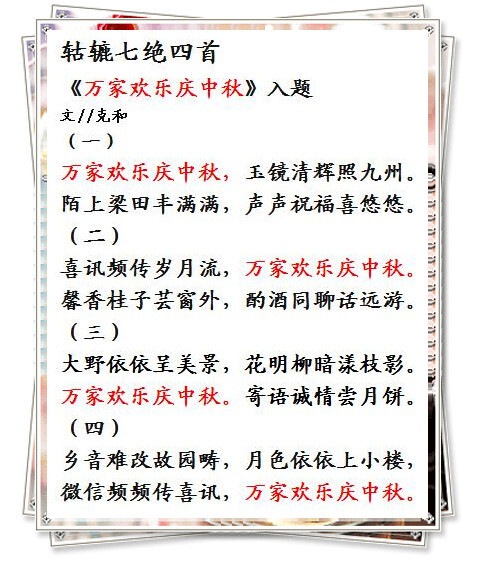 轱辘七绝四首
《万家欢乐庆中秋》入题
文//克和
（一）
万家欢乐庆中秋，玉镜清辉照九州。
陌上梁田丰满满，声声祝福喜悠悠。
（二）
喜讯频传岁月流，万家欢乐庆中秋。
馨香桂子芸窗外，酌酒同聊话远游。
（三）
大野依依呈美景，花明柳暗漾枝影。
万家欢乐庆中秋。寄语诚情尝月饼。
（四）
乡音难改故园畴，月色依依上小楼，
微信频频传喜讯，万家欢乐庆中秋。